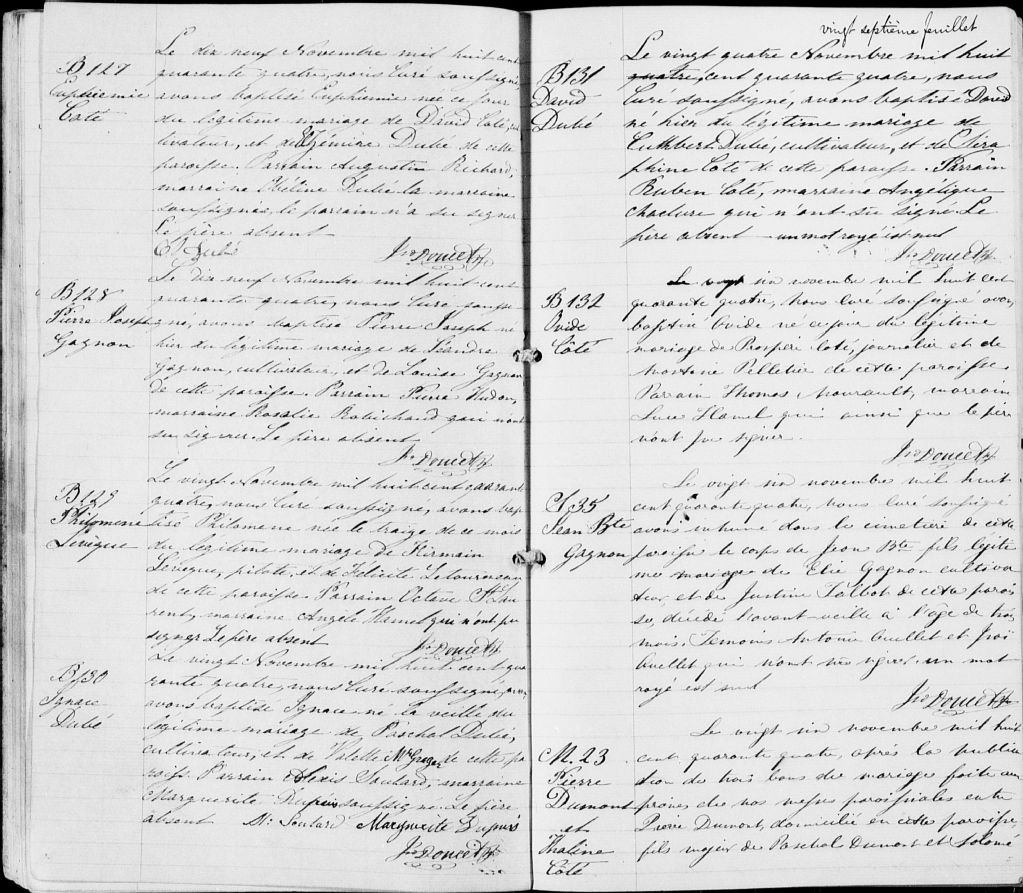 B 127
Euphémie
Coté
Le dix neuf Novembre mil huit cent
quarante quatre, nous Curé soussigné,
avons baptisé Euphémie née ce jour
du légitime mariage de David Coté, cul
tivateur, et de Dubé de cette
paroisse. Parrain Augustin Richard,
marraine Dubé la marraine
soussignée, le parrain n'a su signer
Le père absent
Dubé Jno Doucet Ptr
B 128
Pierre Joseph
Gagnon
Le dix neuf Novembre mil huit cent
quarante quatre, nous Curé soussi
gné, avons baptisé Pierre Joseph né
hier du légitime mariage de Léandre
Gagnon, cultivateur, et de Louise Gagnon
de cette paroisse. Parrain Pierre Hudon,
marraine Rosalie Robichaud qui n'ont
su signer. Le père absent
Jno Doucet Ptr
B 129
Philomène
Lévèque
Le vingt Novembre mil huit cent quarante
quatre, nous Curé soussigné, avons bap
tisé Philomène née le treize de ce mois
du légitime mariage de Firmain
Leveque, pilote, et de Félicité Letourneau
de cette paroisse. Parrain Octave St Lau
rent, marraine Angèle Hamel qui n'ont pu
signer Le père absent
Jno Doucet Ptr
B 130
Ignace
Dubé
Le vingt Novembre mil huit cent qua
rante quatre, nous Curé soussigné,
avons baptisé Ignace né la veille du
légitime mariage de Paschal Dubé,
cultivateur, et de de cette pa
roisse. Parrain Alexis Soulard, marraine
Marguerite Dupuis soussigné. Le père
absent Soulard Marguerite Dupuis
Jno Doucet Ptr
vingt septième feuillet
B 131
David
Dubé
Le vingt quatre Novembre mil huit
quatre, cent quarante quatre, nous
Curé soussigné, avons baptisé David
né hier du légitime mariage de
Cuthbert Dubé, cultivateur, et de Séra
phine Coté de cette paroisse. Parrain
Ruben Coté, marraine Angélique
qui n'ont su signé. Le
père absent un mot rayé est nul
Jno Doucet Ptr
B 132
Ovide
Côté
Le vingt six novembre mil huit cent
quarante quatre, nous curé soussigné avons
baptisé Ovide né ce jour du légitime
mariage de Prosper Coté, journalier et de
Pelletier de cette paroisse
Parrain Thomas marraine
Luce Hamel qui ainsi que le père
n'ont pu signer.
Jno Doucet Ptr
S 35
Jean Bte
Gagnon
Le vingt six novembre mil huit
cent quarante quatre, nous curé soussigné
avons inhumé dans le cimetière de cette
paroisse le corps de Jean Bte fils légiti
me mariage de Elie Gagnon cultiva
teur, et de Justine Talbot de cette parois
se, décédé l'avant veille à l'âge de trois
mois. Témoins Antoine Ouellet et
Ouellet qui n'ont su signer. un mot
rayé est nul
Jno Doucet Ptr
M. 23
Pierre
Dumont
et
Coté
Le vingt six novembre mil huit
cent quarante quatre, après la publica
tion de trois bans de mariage faite aux
prônes de nos messes paroissiales entre
Pierre Dumont, domicilié en cette paroisse,
fils majeur de Paschal Dumont et Salomé